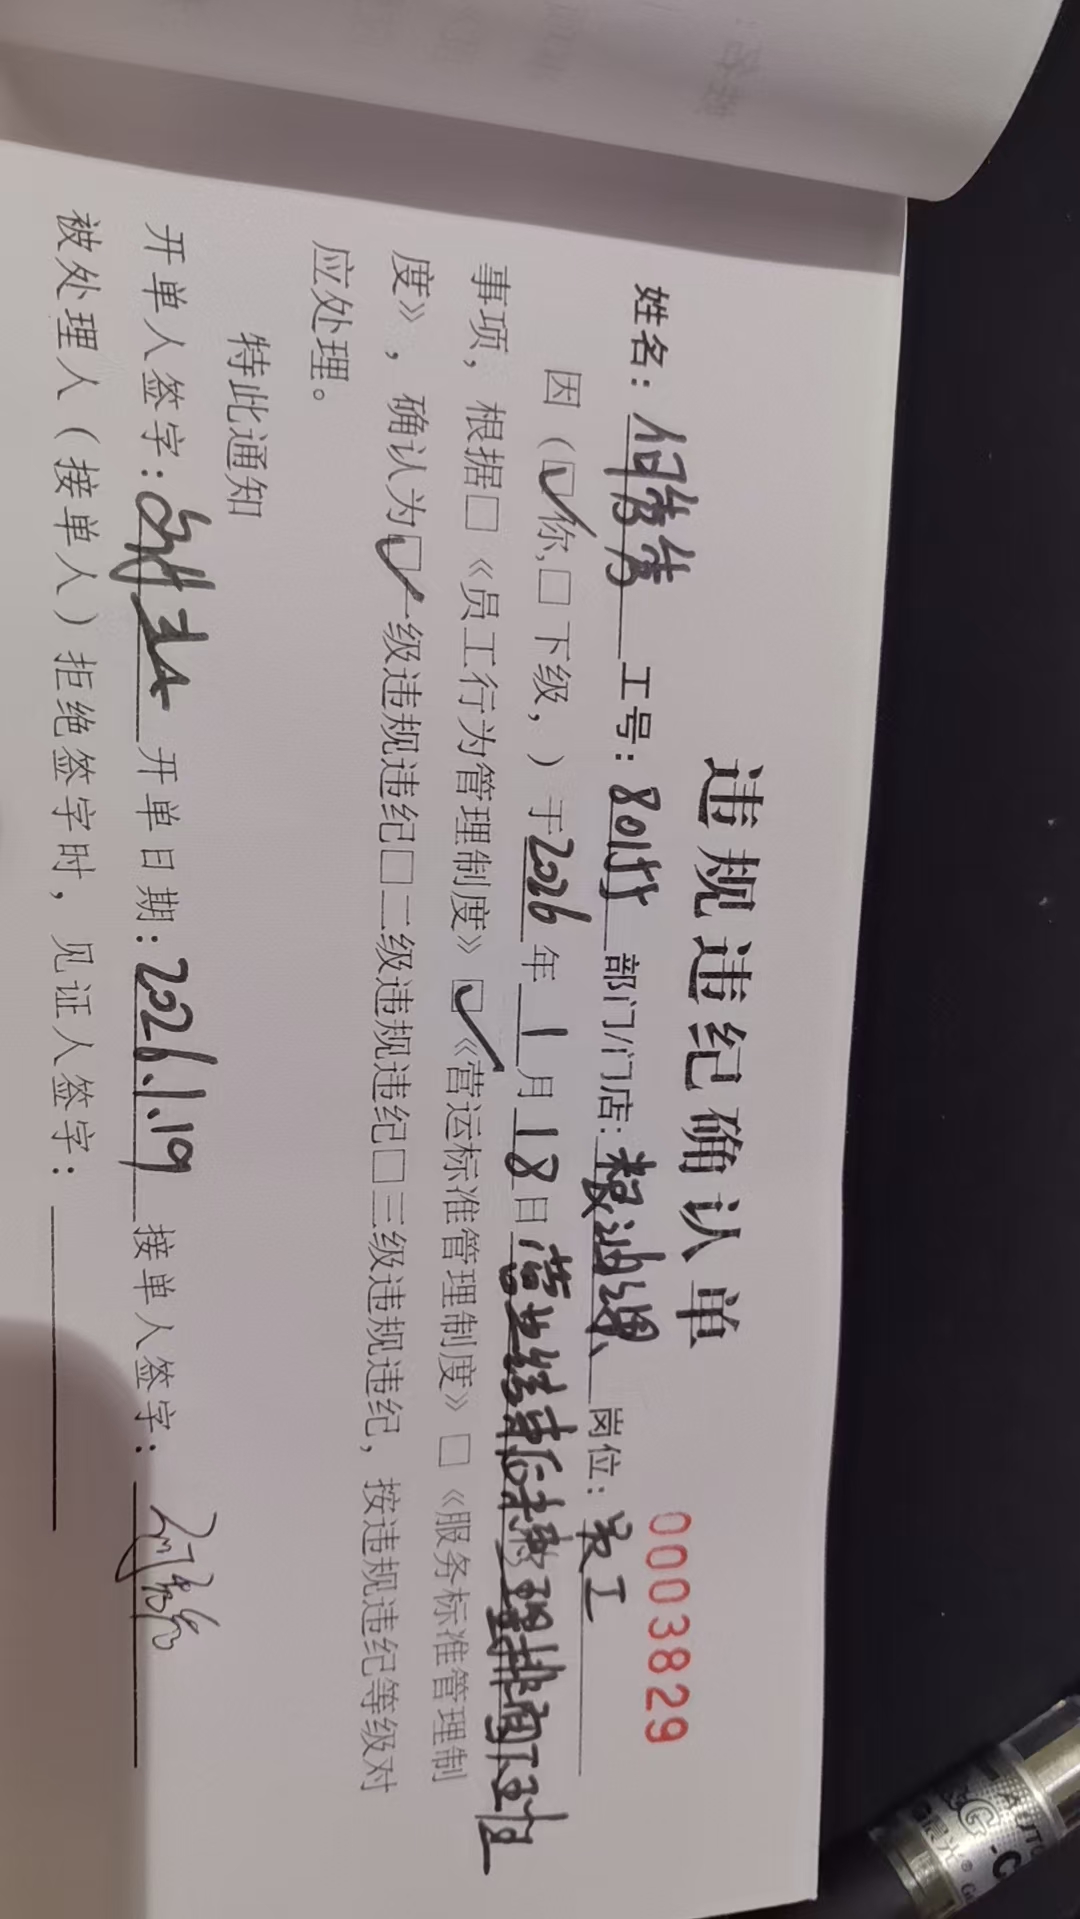 违规违纪确认单
0003829
姓名：何秀秀 工号：8015 部门/门店：粮油课 岗位：员工
因（☑你,□下级，）于2026年1月18日营业结束后未整理排面不到位
事项，根据□《员工行为管理制度》☑《营运标准管理制度》□《服务标准管理制
度》，确认为☑一级违规违纪□二级违规违纪□三级违规违纪，按违规违纪等级对
应处理。
特此通知
开单人签字： 开单日期：2026.1.19 接单人签字：
被处理人（接单人）拒绝签字时，见证人签字：